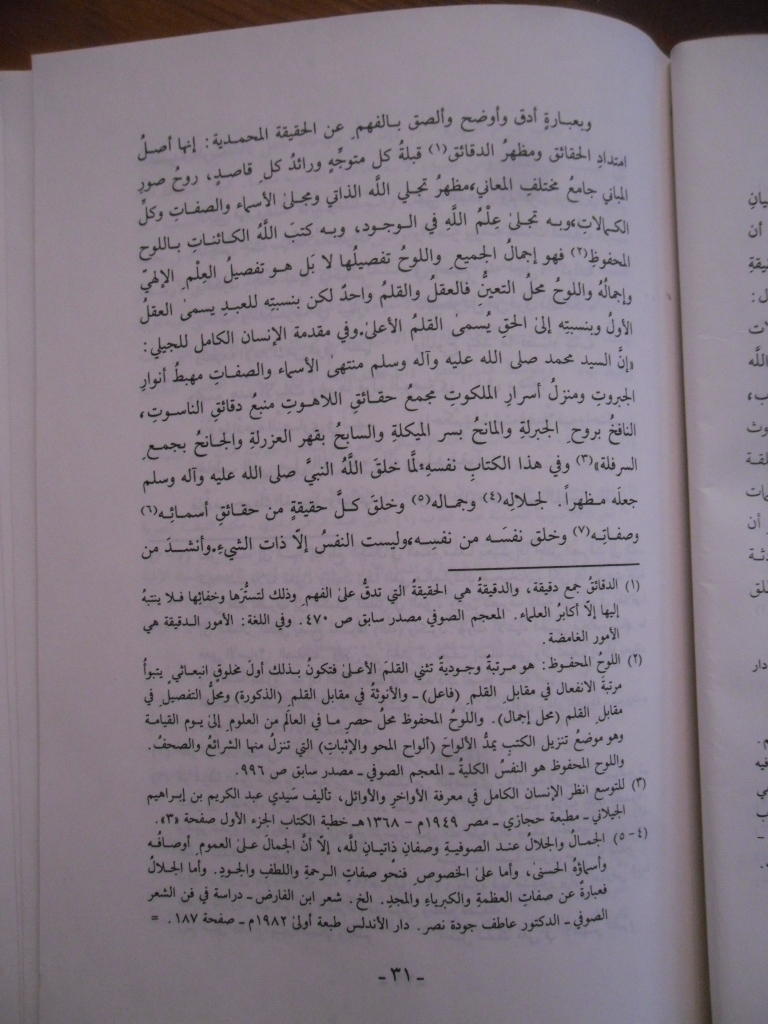 وبعبارةٍ أدق وأوضح وألصق بالفهمِ عن الحقيقة المحمدية: إنها أصلُ
امتدادِ الحقائق ومظهرُ الدقائق(١) قبلةُ كل متوجِّهٍ ورائدُ كلِ قاصدٍ، روحُ صورِ
المباني جامعُ مختلفِ المعاني، مظهرُ تجلي اللَّه الذاتي ومجلىٰ الأسماء والصفاتِ وكلِّ
الكمالاتِ، وبه تجلىٰ عِلْمُ اللَّهِ في الوجود، وبه كتبَ اللَّهُ الكائناتِ باللوح
المحفوظِ(٢) فهو إجمالُ الجميعِ واللوحُ تفصيلُها لا بَل هو تفصيلُ العِلْمِ الإلهيّ
وإجمالُهُ واللوحُ محلُ التعينُّ فالعقلُ والقلمُ واحدٌ لكن بنسبتِه للعبدِ يسمىٰ العقلُ
الأولُ وبنسبتِه إلىٰ الحقِ يُسَمىٰ القلمُ الأعلىٰ. وفي مقدمة الإنسان الكامل للجيلي:
«إنَّ السيد محمد صلى الله عليه وآله وسلم منتهىٰ الأسماء والصفاتِ مهبطُ أنوارِ
الجبروتِ ومنزلُ أسرارِ الملكوتِ مجمعُ حقائقِ اللاهوتِ منبعُ دقائقِ الناسوتِ،
النافخُ بروحِ الجبرلةِ والمانحُ بسر الميكلةِ والسابحُ بقهر العزرلةِ والجانحُ بجمعِ
السرفلة»(٣) وفي هذا الكتابِ نفسهِ: لمَّا خلقَ اللَّهُ النبيَّ صلى الله عليه وآله وسلم
جعلَه مظهراً. لجلالِه(٤) وجماله(٥) وخلقَ كلَّ حقيقةٍ من حقائقِ أسمائِه(٦)
وصفاتِه(٧) وخلق نفسَه من نفسِه، وليست النفسُ إلّا ذات الشيءِ. وأنشدَ من
(١) الدقائقُ جمع دقيقة، والدقيقةُ هي الحقيقةُ التي تدقُّ علىٰ الفهمِ وذلك لتستُّرها وخفائِها فلا ينتبهُ
إليها إلّا أكابرُ العلماء. المعجم الصوفي مصدر سابق ص ٤٧٠. وفي اللغة: الأمور الدقيقة هي
الأمور الغامضة.
(٢) اللوحُ المحفوظ: هو مرتبةٌ وجوديةٌ تثني القلمَ الأعلىٰ فتكونُ بذلك أولَ مخلوقٍ انبعاثيٍ يتبوأُ
مرتبةَ الانفعال في مقابلِ القلمِ (فاعل) ـ والأنوثةُ في مقابلِ القلمِ (الذكورة) ومحلُ التفصيلِ في
مقابلِ القلم (محل إجمال). واللوحُ المحفوظ محلُ حصرِ ما في العالَم من العلوم إلىٰ يوم القيامة
وهو موضعُ تنزيل الكتبِ يمدُّ الألواحَ (ألواح المحو والإثباتِ) التي تنزلُ منها الشرائعُ والصحفُ.
واللوح المحفوظ هو النفسُ الكليةُ ـ المعجم الصوفي ـ مصدر سابق ص ٩٩٦.
(٣) للتوسع انظر الإنسان الكامل في معرفة الأواخر والأوائل، تأليف سَيدي عبد الكريم بن إبراهيم
الجيلاني ـ مطبعة حجازي ـ مصر ١٩٤٩م ـ ١٣٦٨هـ خطبة الكتاب الجزء الأول صفحة «٣».
(٤ ـ ٥) الجمالُ والجلالُ عند الصوفية وصفانِ ذاتيانِ للَّه، إلّا أنَّ الجمالَ علىٰ العمومِ أوصافُه
وأسماؤهُ الحسنىٰ، وأما علىٰ الخصوصِ فنحو صفاتِ الرحمةِ واللطفِ والجودِ. وأما الجلالُ
فعبارةٌ عن صفاتِ العظمةِ والكبرياءِ والمجدِ. الخ. شعر ابن الفارض ـ دراسة في فن الشعر
الصوفي ـ الدكتور عاطف جودة نصر. دار الأندلس طبعة أولىٰ ١٩٨٢م ـ صفحة ١٨٧. =
ـ ٣١ ـ